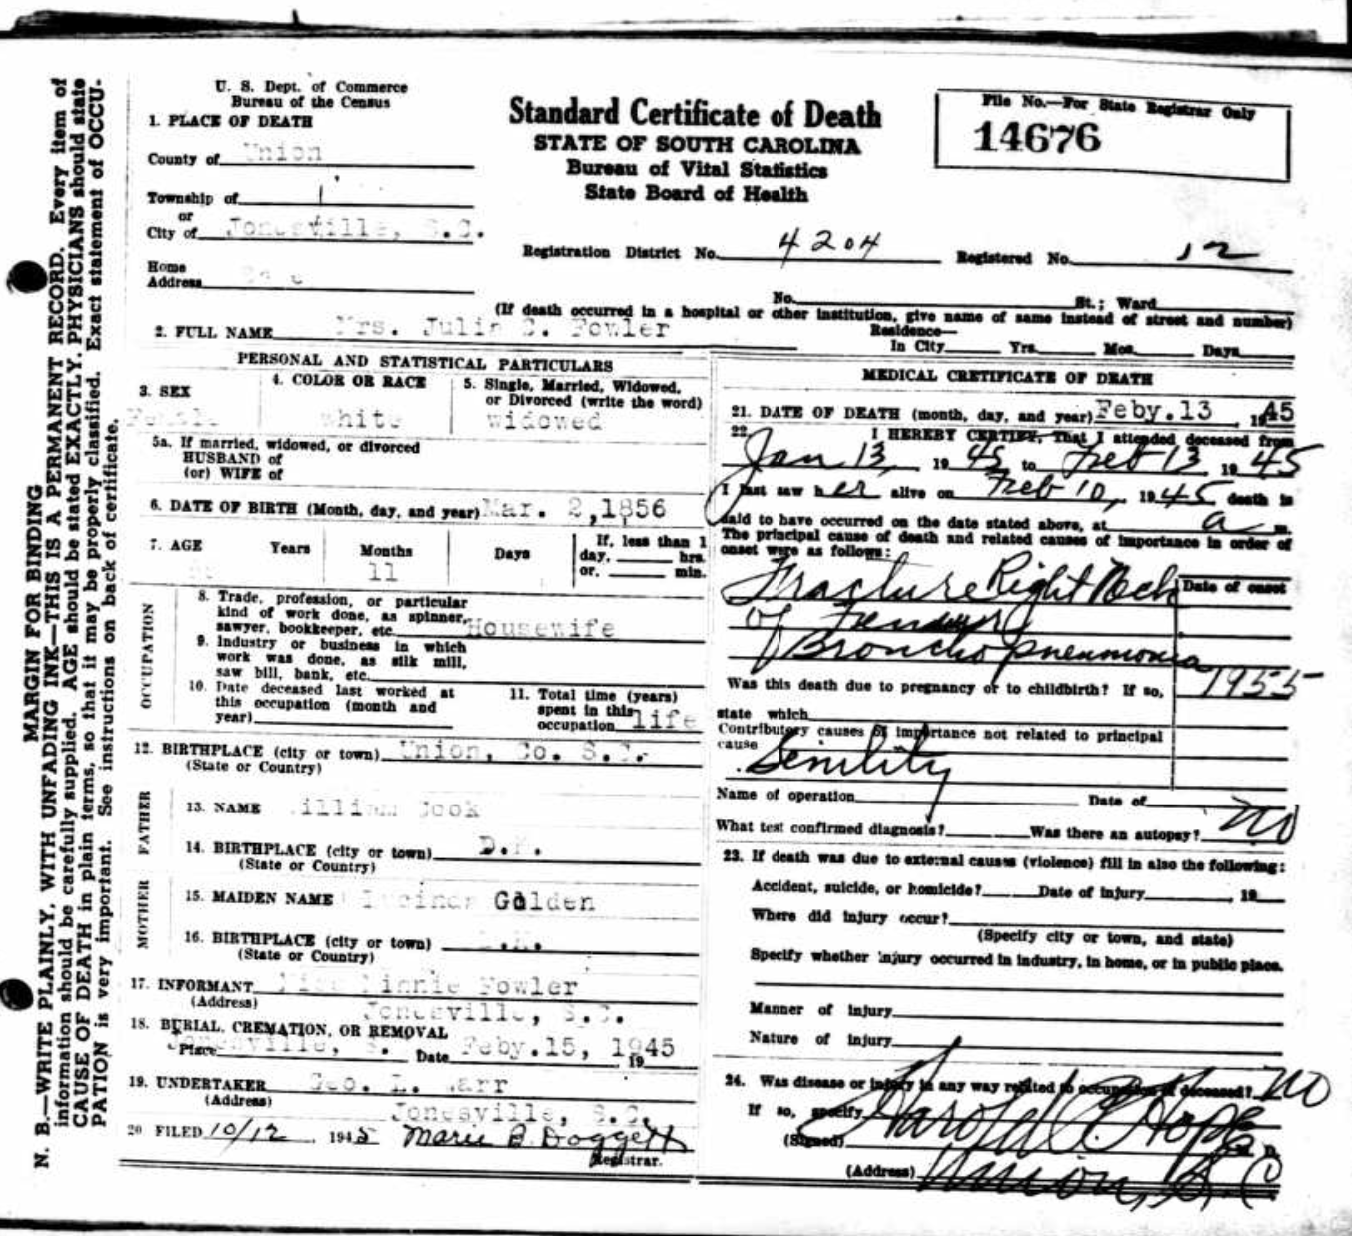 U. S. Dept. of Commerce
Bureau of the Census
1. PLACE OF DEATH
County of Union
Township of
or
City of Jonesville, S.C.
Home
Address
Standard Certificate of Death
STATE OF SOUTH CAROLINA
Bureau of Vital Statistics
State Board of Health
File No.—For State Registrar Only
14676
Registration District No. 4204 Registered No. 12
No. St.; Ward
(If death occurred in a hospital or other institution, give name of same instead of street and number)
2. FULL NAME Mrs. Julia C. Fowler
Residence—
In City Yrs. Mos. Days
PERSONAL AND STATISTICAL PARTICULARS
3. SEX
Female
4. COLOR OR RACE
white
5. Single, Married, Widowed,
or Divorced (write the word)
widowed
5a. If married, widowed, or divorced
HUSBAND of
(or) WIFE of
6. DATE OF BIRTH (Month, day, and year) Mar. 2, 1856
7. AGE Years Months Days
11
If, less than 1
day, hrs.
or. min.
OCCUPATION
8. Trade, profession, or particular
kind of work done, as spinner,
sawyer, bookkeeper, etc. Housewife
9. Industry or business in which
work was done, as silk mill,
saw bill, bank, etc.
10. Date deceased last worked at
this occupation (month and
year)
11. Total time (years)
spent in this
occupation life
12. BIRTHPLACE (city or town) Union, Co. S.C.
(State or Country)
FATHER
13. NAME William Cook
14. BIRTHPLACE (city or town) D.K.
(State or Country)
MOTHER
15. MAIDEN NAME Lucinda Golden
16. BIRTHPLACE (city or town) D.K.
(State or Country)
17. INFORMANT Miss Minnie Fowler
(Address) Jonesville, S.C.
18. BURIAL, CREMATION, OR REMOVAL
Place Jonesville, S. Date Feby. 15, 1945
19
19. UNDERTAKER Geo. L. Barr
(Address) Jonesville, S.C.
20 FILED 10/12 1945 Marie B. Doggett
Registrar.
MEDICAL CRETIFICATE OF DEATH
21. DATE OF DEATH (month, day, and year) Feby. 13, 1945
22. I HEREBY CERTIFY, That I attended deceased from
Jan 13, 1945 to Feb 13 1945
I last saw her alive on Feb 10, 1945 death is
said to have occurred on the date stated above, at a m.
The principal cause of death and related causes of importance in order of
onset were as follows:
Date of onset
Fracture Right Neck
of Femur
Broncho pneumonia 1955
Was this death due to pregnancy or to childbirth? If so,
state which
Contributory causes of importance not related to principal
cause
Senility
Name of operation Date of
What test confirmed diagnosis? Was there an autopsy? no
23. If death was due to external causes (violence) fill in also the following:
Accident, suicide, or homicide? Date of injury 19
Where did injury occur?
(Specify city or town, and state)
Specify whether injury occurred in industry, in home, or in public place.
Manner of injury
Nature of injury
24. Was disease or injury in any way related to occupation of deceased? no
If so, specify
(Signed) Harold C Hope
(Address) Union, S. C
MARGIN FOR BINDING
N. B.—WRITE PLAINLY, WITH UNFADING INK—THIS IS A PERMANENT RECORD. Every item of
information should be carefully supplied. AGE should be stated EXACTLY. PHYSICIANS should state
CAUSE OF DEATH in plain terms, so that it may be properly classified. Exact statement of OCCU-
PATION is very important. See instructions on back of certificate.